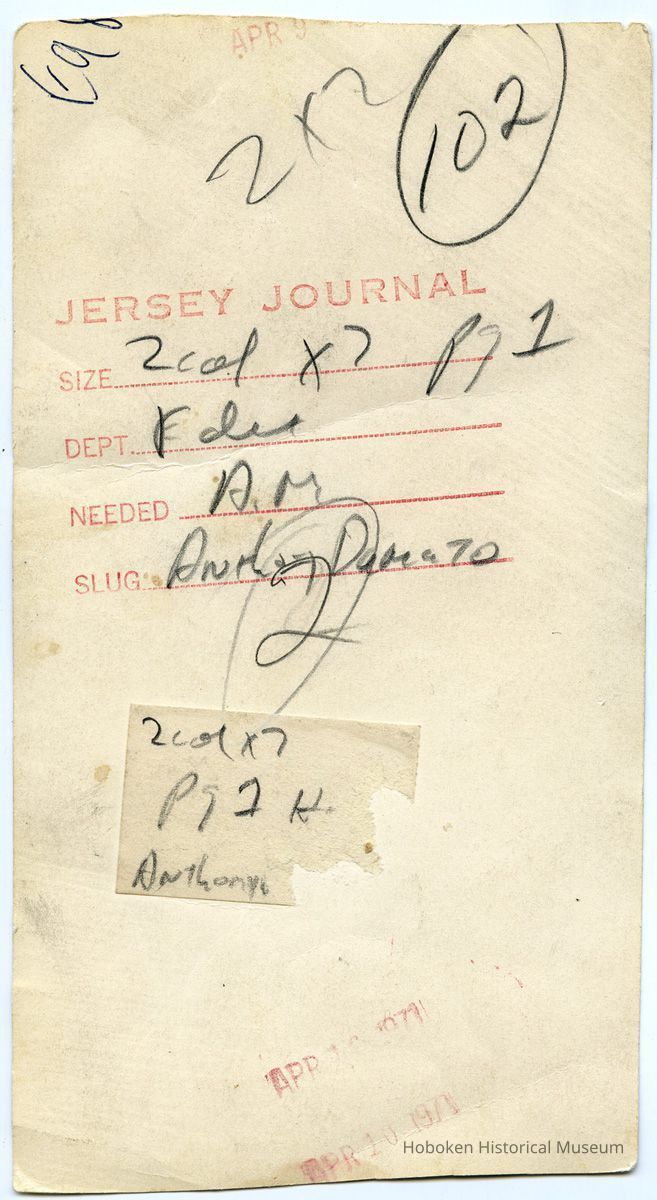 APR 9
2x2
102
JERSEY JOURNAL
SIZE 2 col x 7 Pg 1
DEPT.
NEEDED A.M
SLUG Anthony Damato
2 col x 7
Pg 1 H.
Anthony
APR 10 1971
APR 10 1971
Hoboken Historical Museum